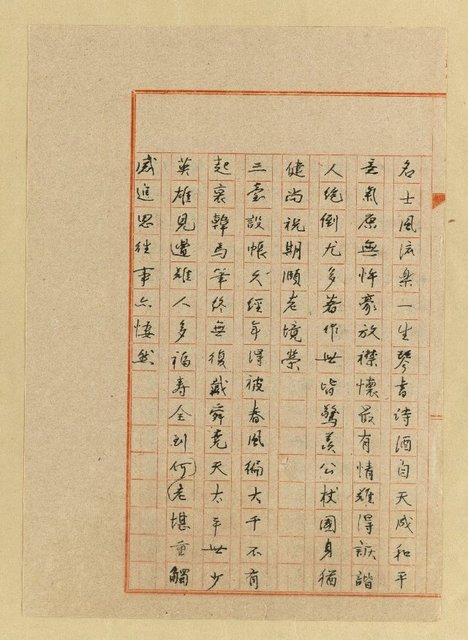 名士風流樂一生琴書詩酒自天成和平
意氣原無忤豪放襟懷最有情難得詼諧
人絕倒尤多著作世皆驚羨公杖國身猶
健尚祝期頤老境榮
三臺設帳久經年澤被春風徧大千不有
起衰韓馬筆終無復戴舜堯天太平世少
英雄見遺難人多福壽全到何老堪重觸
感進思往事六悽然